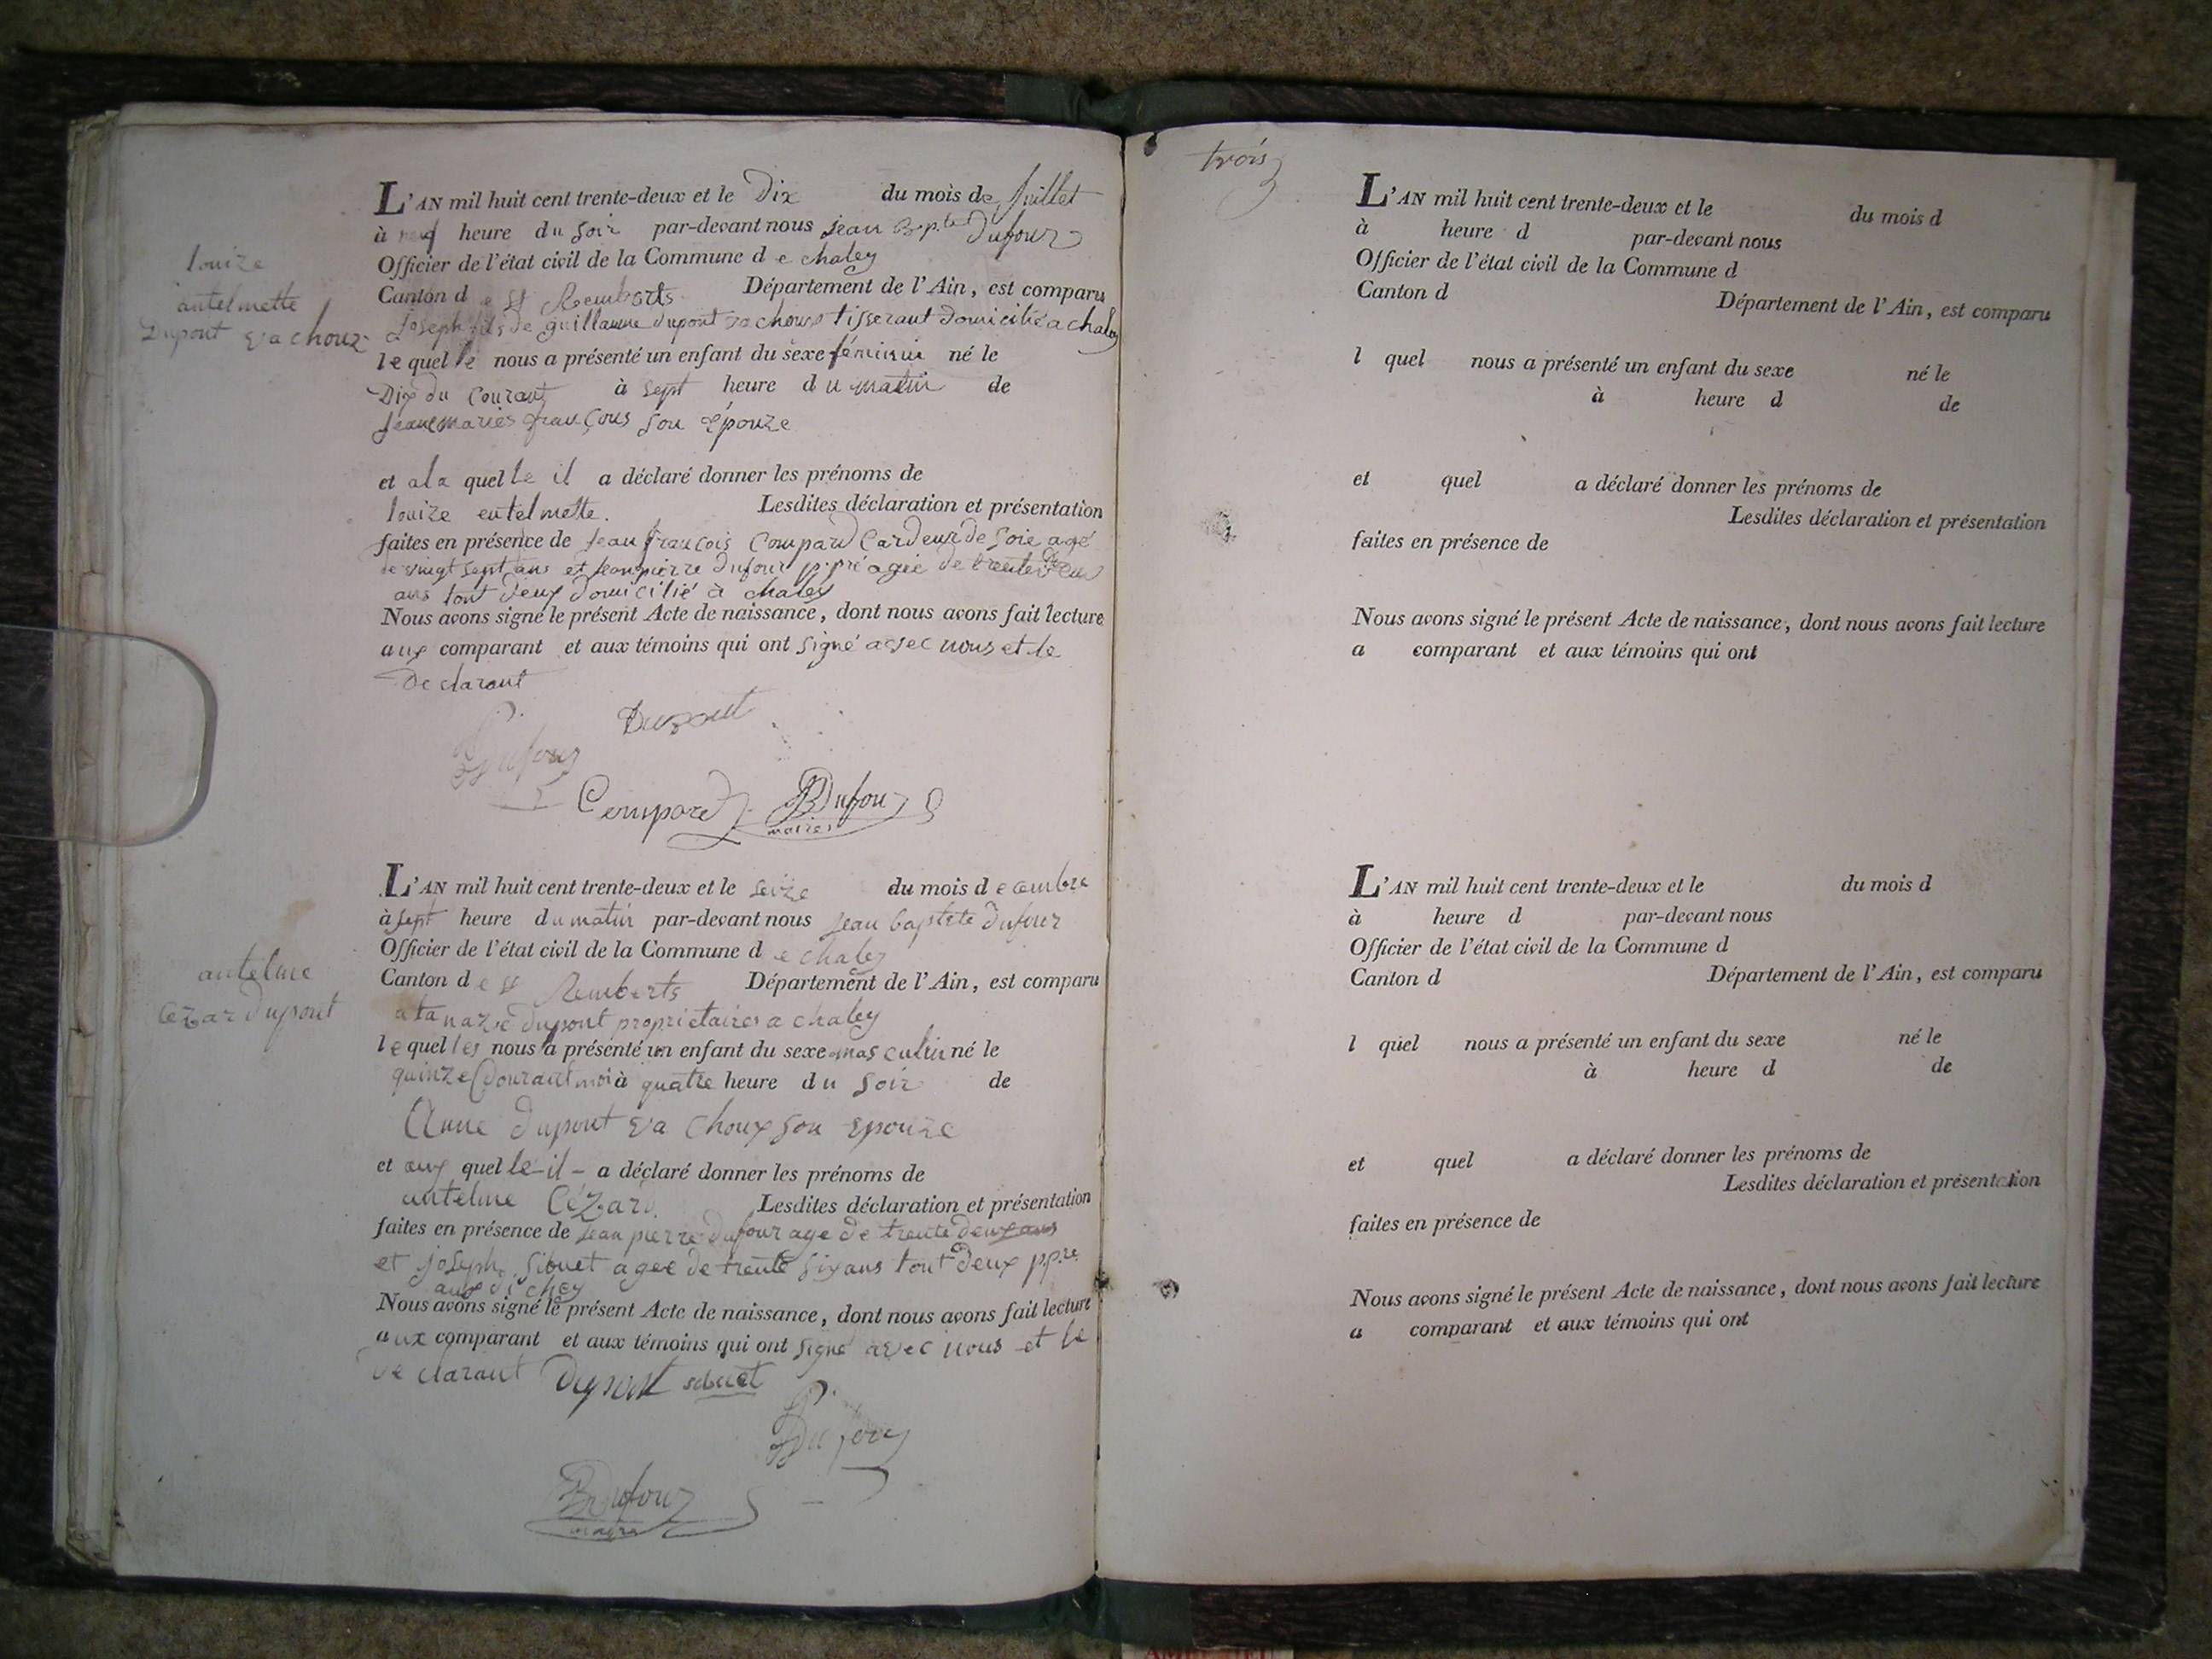 L'AN mil huit cent trente-deux et le Dix du mois de Juillet
à neuf heure du soir par-devant nous jean Bpte Dufour
Officier de l'état civil de la Commune de chaley
Canton de st Remberts Département de l'Ain, est comparu
Joseph fils de guillaume dupont vachoux tisserant domicilié a chaley
lequelle nous a présenté un enfant du sexe féminin né le
Dix du Courant à sept heure du matin de
Jeanemaries françois son épouze
et ala quelle il a déclaré donner les prénoms de
louize entelmette. Lesdites déclaration et présentation
faites en présence de jean françois Compard Cardeur de soie agé
de vingt sept ans et jean pierre Dufour ppre agée de trente deux
ans tout deux domicilié à chaley
Nous avons signé le présent Acte de naissance, dont nous avons fait lecture
aux comparant et aux témoins qui ont signé avec nous et le
Declarant
Dupont
P Dufour
Compard BDufour
maires
louize
antelmette
Dupont vachoux
L'AN mil huit cent trente-deux et le seize du mois decembre
à sept heure du matin par-devant nous jean baptiste dufour
Officier de l'état civil de la Commune de chaley
Canton de st Remberts Département de l'Ain, est comparu
atanaze dupont proprietaires a chaley
lequelles nous a présenté un enfant du sexe masculin né le
quinze Courant moi à quatre heure du soir de
Anne dupont va choux son epouze
et aux quelle-il- a déclaré donner les prénoms de
antelme Cézard. Lesdites déclaration et présentation
faites en présence de jean pierre dufour age de trente deux ans
et joseph sibuet agee de trente six ans tout deux ppre
Nous avons signé le présent Acte de naissance, dont nous avons fait lecture
aux comparant et aux témoins qui ont signé avec nous et le
Declarant Dupont sibuet
P Dufour
BDufour
maire
antelme
cezar dupont
trois
L'AN mil huit cent trente-deux et le du mois d
à heure d par-devant nous
Officier de l'état civil de la Commune d
Canton d Département de l'Ain, est comparu
l quel nous a présenté un enfant du sexe né le
à heure d de
et quel a déclaré donner les prénoms de
Lesdites déclaration et présentation
faites en présence de
Nous avons signé le présent Acte de naissance, dont nous avons fait lecture
a comparant et aux témoins qui ont
L'AN mil huit cent trente-deux et le du mois d
à heure d par-devant nous
Officier de l'état civil de la Commune d
Canton d Département de l'Ain, est comparu
l quel nous a présenté un enfant du sexe né le
à heure d de
et quel a déclaré donner les prénoms de
Lesdites déclaration et présentation
faites en présence de
Nous avons signé le présent Acte de naissance, dont nous avons fait lecture
a comparant et aux témoins qui ont